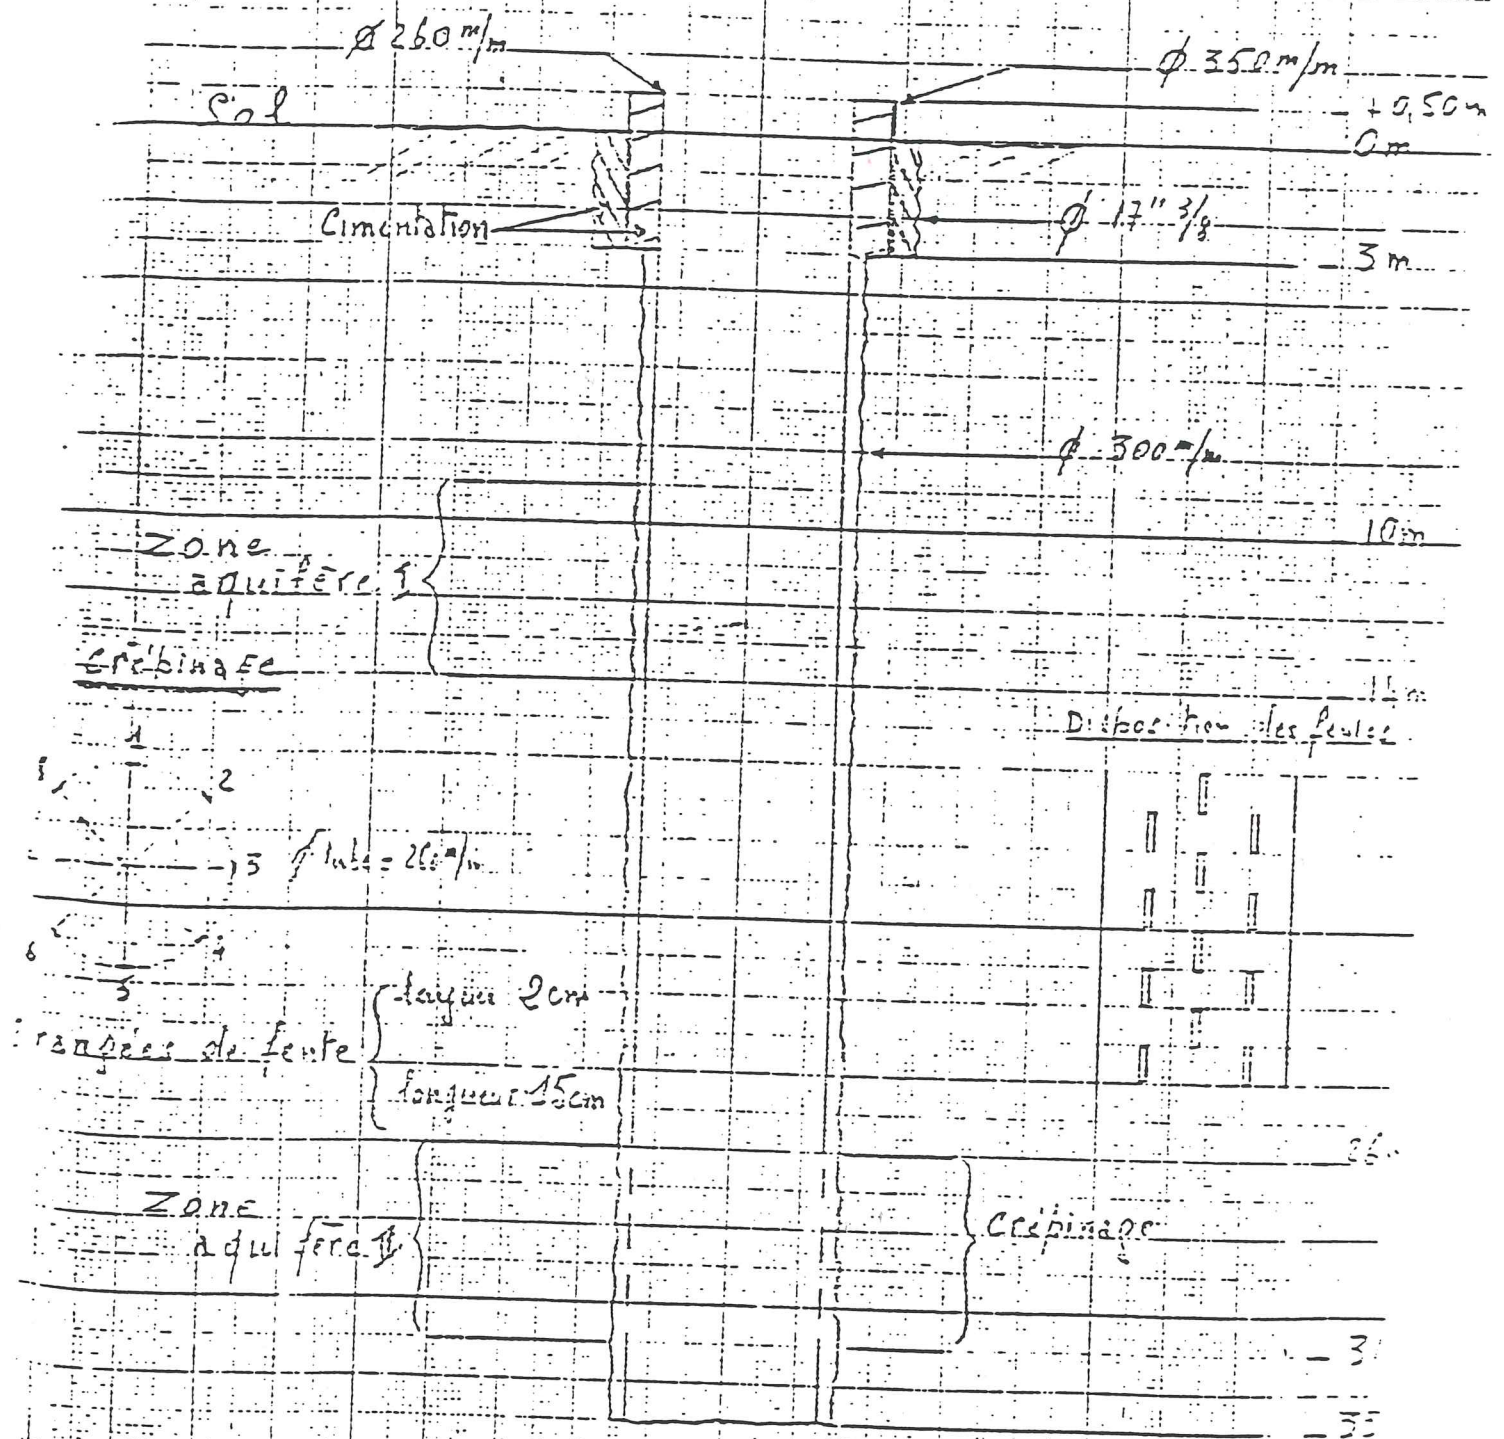 Ø 260 m/m
Ø 350 m/m
+ 0,50 m
Sol
0 m
Cimentation
Ø 17" 3/8
3 m
Ø 300 m/m
10 m
Zone
aquifère I
Crépinage
Disposition des fentes
1
2
3
4
5
6
Ø tube = 260 m/m
rangées de fente
largeur 2 cm
longueur 15 cm
26
Zone
aquifère II
Crépinage
3